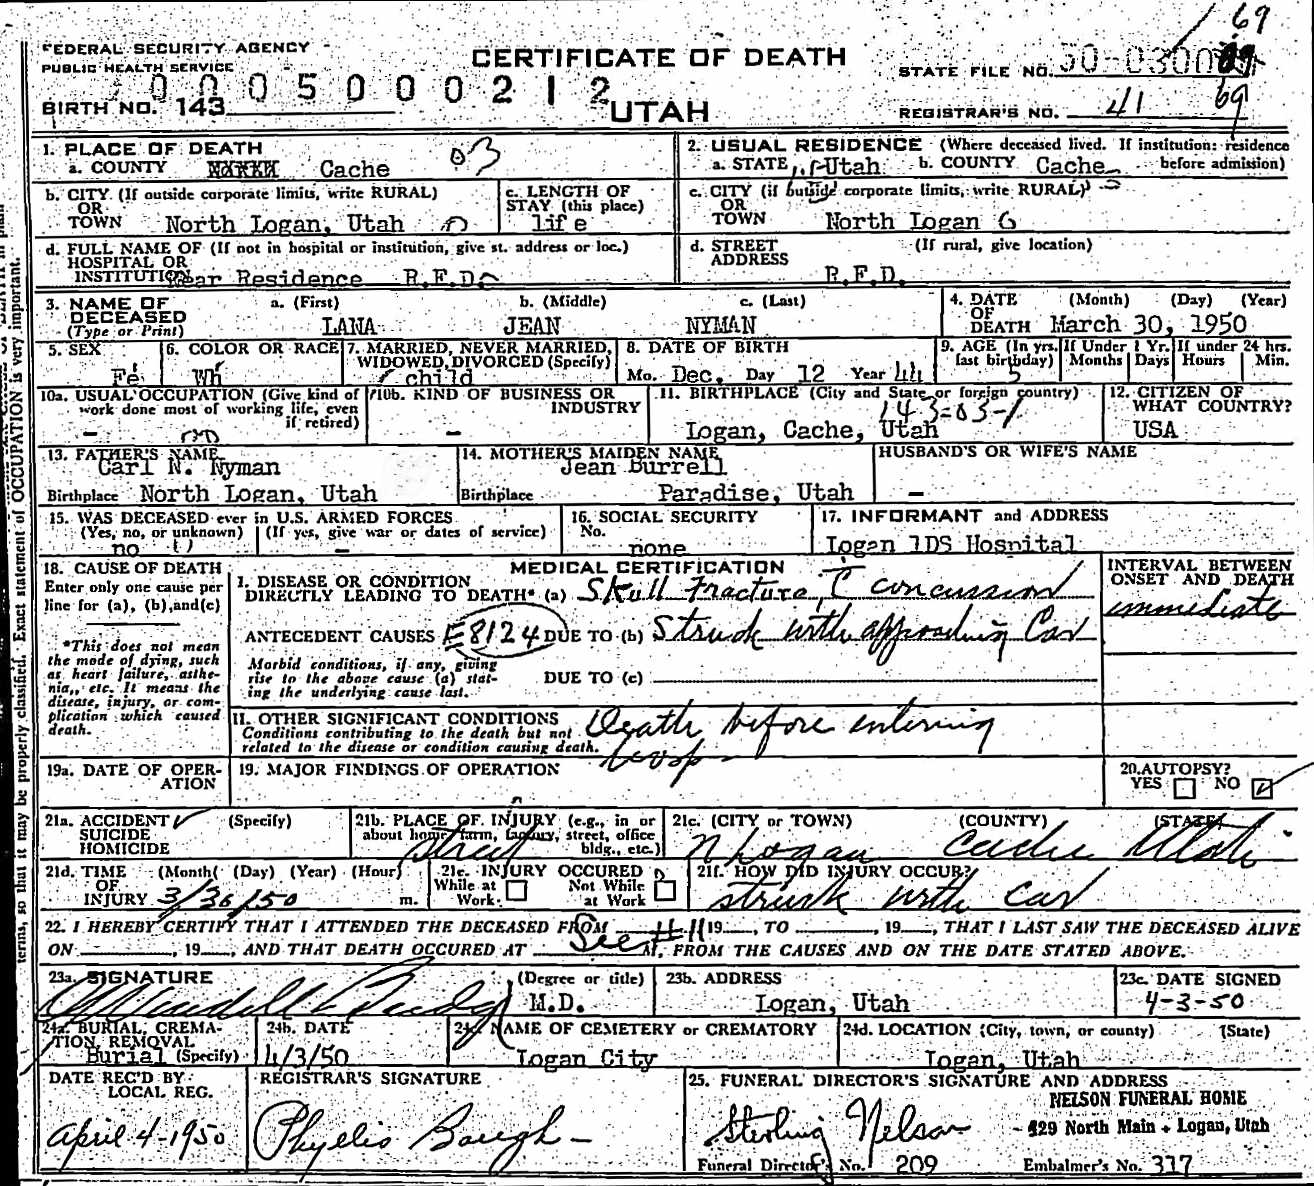 69
FEDERAL SECURITY AGENCY
PUBLIC HEALTH SERVICE
CERTIFICATE OF DEATH
STATE FILE NO. 50-0300
69
0005000212
BIRTH NO. 143
UTAH
REGISTRAR'S NO. 41
1. PLACE OF DEATH
a. COUNTY Cache 03
2. USUAL RESIDENCE (Where deceased lived. If institution: residence before admission)
a. STATE Utah b. COUNTY Cache
b. CITY (If outside corporate limits, write RURAL)
OR
TOWN North Logan, Utah
c. LENGTH OF STAY (this place)
life
c. CITY (if outside corporate limits, write RURAL)
OR
TOWN North Logan
d. FULL NAME OF (If not in hospital or institution, give st. address or loc.)
HOSPITAL OR
INSTITUTION Near Residence R.F.D.
d. STREET ADDRESS (If rural, give location)
R.F.D.
3. NAME OF DECEASED
(Type or Print)
a. (First) b. (Middle) c. (Last)
LANA JEAN NYMAN
4. DATE OF DEATH (Month) (Day) (Year)
March 30, 1950
5. SEX
Fe
6. COLOR OR RACE
Wh
7. MARRIED, NEVER MARRIED, WIDOWED, DIVORCED (Specify)
child
8. DATE OF BIRTH
Mo. Dec. Day 12 Year 44
9. AGE (In yrs. last birthday)
5
If Under 1 Yr. Months Days
If under 24 hrs. Hours Min.
10a. USUAL OCCUPATION (Give kind of work done most of working life, even if retired)
-
10b. KIND OF BUSINESS OR INDUSTRY
-
11. BIRTHPLACE (City and State or foreign country)
143-03-1
Logan, Cache, Utah
12. CITIZEN OF WHAT COUNTRY?
USA
13. FATHER'S NAME
Carl N. Nyman
Birthplace North Logan, Utah
14. MOTHER'S MAIDEN NAME
Jean Burrell
Birthplace Paradise, Utah
HUSBAND'S OR WIFE'S NAME
-
15. WAS DECEASED ever in U.S. ARMED FORCES
(Yes, no, or unknown) (If yes, give war or dates of service)
no -
16. SOCIAL SECURITY No.
none
17. INFORMANT and ADDRESS
Logan LDS Hospital
18. CAUSE OF DEATH
Enter only one cause per line for (a), (b), and (c)
*This does not mean the mode of dying, such as heart failure, asthenia, etc. It means the disease, injury, or complication which caused death.
MEDICAL CERTIFICATION
I. DISEASE OR CONDITION DIRECTLY LEADING TO DEATH* (a) Skull Fracture, c concussion
ANTECEDENT CAUSES E8124 DUE TO (b) Struck with approaching Car
Morbid conditions, if any, giving rise to the above cause (a) stating the underlying cause last.
DUE TO (c)
INTERVAL BETWEEN ONSET AND DEATH
immediate
II. OTHER SIGNIFICANT CONDITIONS
Conditions contributing to the death but not related to the disease or condition causing death.
Death before entering
hosp
19a. DATE OF OPERATION
19. MAJOR FINDINGS OF OPERATION
20. AUTOPSY?
YES NO
21a. ACCIDENT (Specify)
SUICIDE
HOMICIDE
21b. PLACE OF INJURY (e.g., in or about home, farm, factory, street, office bldg., etc.)
street
21c. (CITY or TOWN) (COUNTY) (STATE)
N Logan Cache Utah
21d. TIME OF INJURY (Month) (Day) (Year) (Hour)
3/30/50 m.
21e. INJURY OCCURED
While at Work Not While at Work
21f. HOW DID INJURY OCCUR?
struck with car
22. I HEREBY CERTIFY THAT I ATTENDED THE DECEASED FROM 19, TO , 19, THAT I LAST SAW THE DECEASED ALIVE
See #11
ON , 19, AND THAT DEATH OCCURED AT M, FROM THE CAUSES AND ON THE DATE STATED ABOVE.
23a. SIGNATURE (Degree or title)
M.D.
23b. ADDRESS
Logan, Utah
23c. DATE SIGNED
4-3-50
24a. BURIAL, CREMATION, REMOVAL
Burial (Specify)
24b. DATE
4/3/50
24c. NAME OF CEMETERY or CREMATORY
Logan City
24d. LOCATION (City, town, or county) (State)
Logan, Utah
DATE REC'D BY LOCAL REG.
April 4-1950
REGISTRAR'S SIGNATURE
Phyllis Baugh
25. FUNERAL DIRECTOR'S SIGNATURE AND ADDRESS
NELSON FUNERAL HOME
Sterling Nelson
429 North Main + Logan, Utah
Funeral Director's No. 209 Embalmer's No. 317
terms, so that it may be properly classified. Exact statement of OCCUPATION is very important.